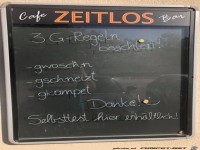 Cafe ZEITLOS Bar
3 G-Regeln
beachten!
- gwoschn
- gschneizt
- gkampet
Danke!
Selbsttest hier erhältlich!